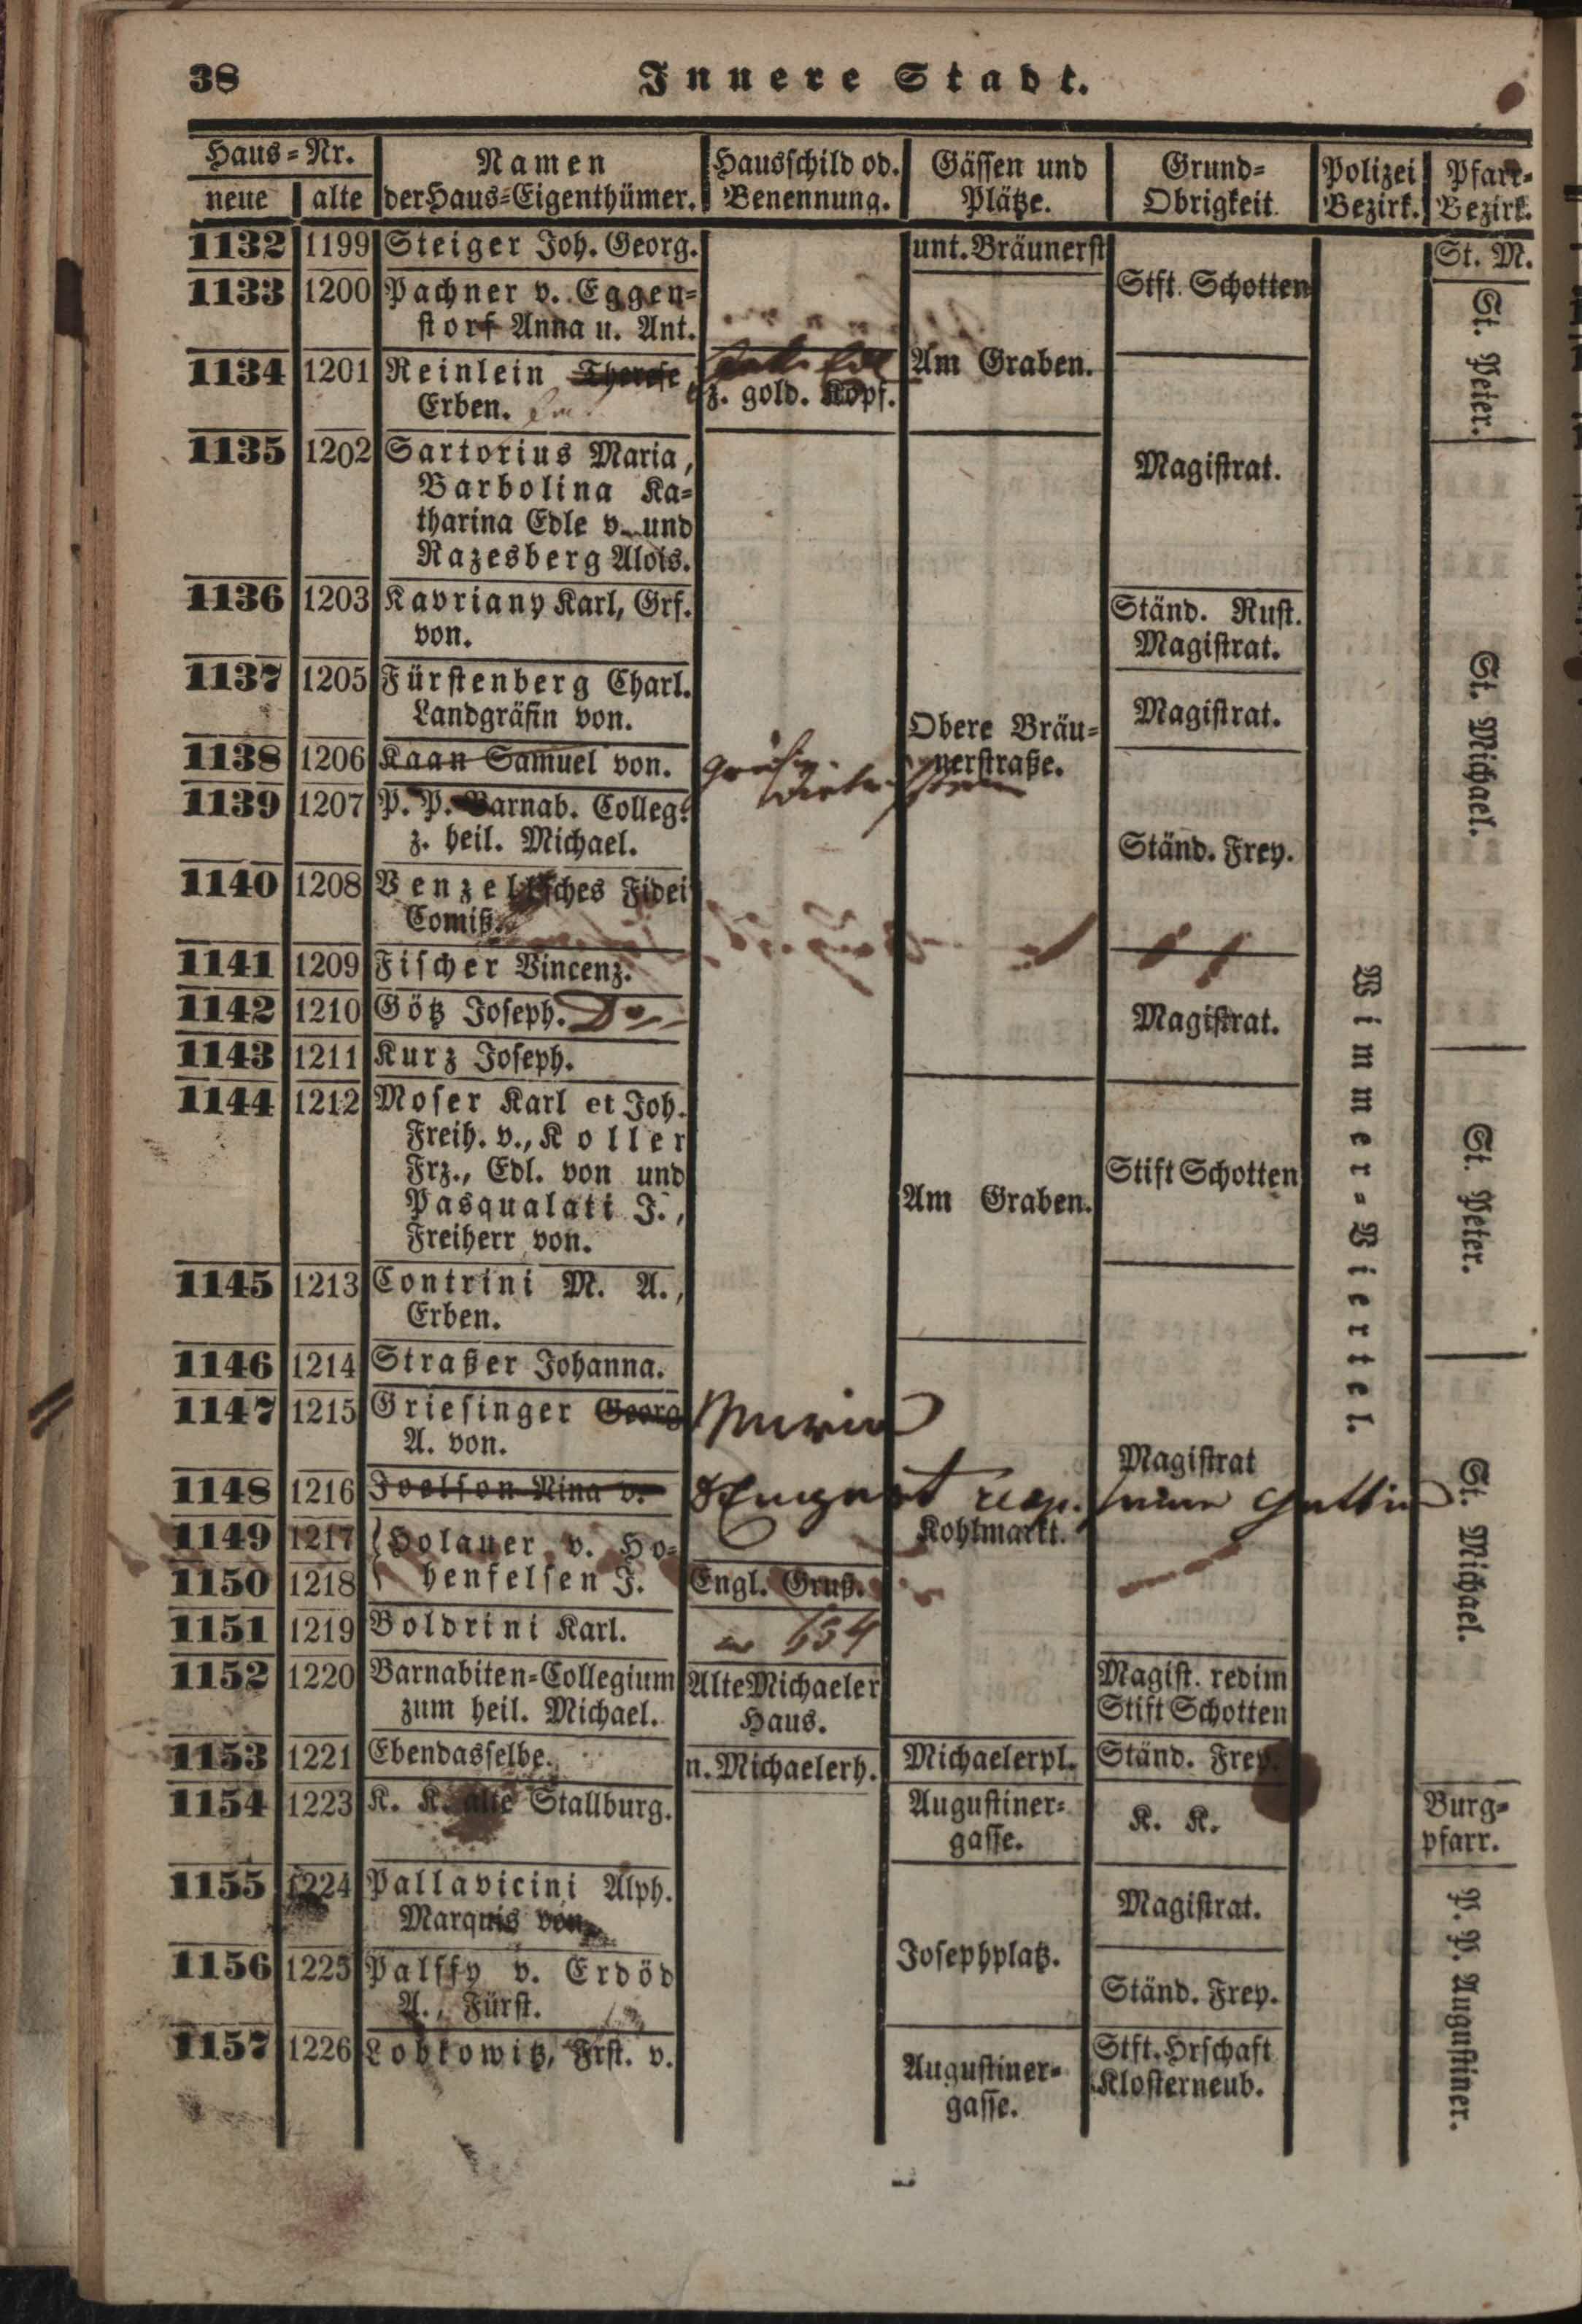 38
Innere Stadt.
Haus-Nr.
neue alte
Namen
der Haus-Eigenthümer.
Hausschild od.
Benennung.
Gässen und
Plätze.
Grund-
Obrigkeit.
Polizei
Bezirk.
Pfarr-
Bezirk.
1132 1199 Steiger Joh. Georg. unt. Bräunerst St. M.
1133 1200 Pachner v. Eggen- Stft. Schotten
storf Anna u. Ant.
1134 1201 Reinlein Therese, Am Graben. St. Peter.
Erben. z. gold. Kopf.
1135 1202 Sartorius Maria, Magistrat.
Barbolina Ka-
tharina Edle v. und
Razesberg Alois.
1136 1203 Kavriany Karl, Grf. Ständ. Rust.
von. Magistrat.
1137 1205 Fürstenberg Charl. Magistrat. St. Michael.
Landgräfin von. Obere Bräu-
1138 1206 Kaan Samuel von. nerstraße.
1139 1207 P. P. Barnab. Colleg.
z. heil. Michael. Ständ. Frey.
1140 1208 Venzelisches Fidei
Comiß.
1141 1209 Fischer Vincenz.
1142 1210 Götz Joseph. Magistrat.
1143 1211 Kurz Joseph.
1144 1212 Moser Karl et Joh.
Freih. v., Koller
Frz., Edl. von und Stift Schotten St. Peter.
Pasqualati J., Am Graben.
Freiherr von.
Wimmer-Viertel.
1145 1213 Contrini M. A.,
Erben.
1146 1214 Straßer Johanna.
1147 1215 Griesinger Georg
A. von. Magistrat
1148 1216 Joelson Nina v.
1149 1217 Holauer v. Ho- Kohlmarkt. St. Michael.
1150 1218 henfelsen J. Engl. Gruß.
1151 1219 Boldrini Karl. 654
1152 1220 Barnabiten-Collegium Alte Michaeler Magist. redim
zum heil. Michael. Haus. Stift Schotten
1153 1221 Ebendasselbe. n. Michaelerh. Michaelerpl. Ständ. Frey.
1154 1223 K. K. alte Stallburg. Augustiner- K. K. Burg-
gasse. pfarr.
1155 1224 Pallavicini Alph. Magistrat.
Marquis von.
1156 1225 Palffy v. Erdöd Josephplatz. P. P. Augustiner.
A., Fürst. Ständ. Frey.
1157 1226 Lobkowitz, Frst. v. Augustiner- Stft. Hrschaft
gasse. Klosterneub.